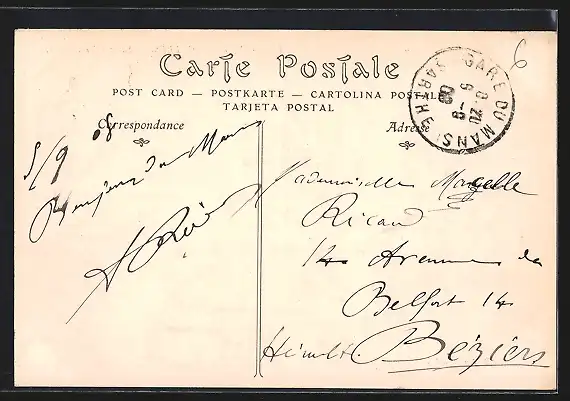 Carte Postale
POST CARD — POSTKARTE — CARTOLINA POSTALE
TARJETA POSTAL
Correspondance
Adresse
GARE DU MANS SARTHE
8-20
5-9
08
6
5/9 08
Bonjour du Mans
Mademoiselle Marcelle
Ricard
14 Avenue de
Belfort 14
Hérault. Béziers